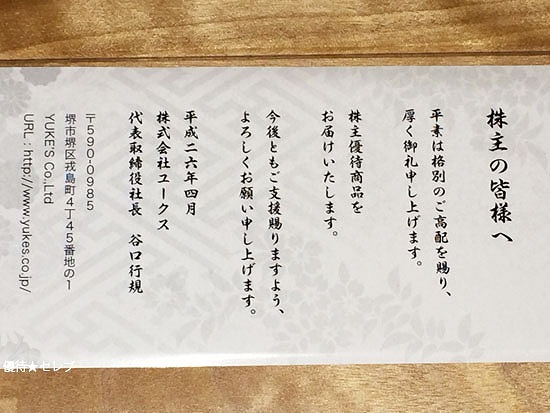 株主の皆様へ
平素は格別のご高配を賜り、
厚く御礼申し上げます。
株主優待商品を
お届けいたします。
今後ともご支援賜りますよう、
よろしくお願い申し上げます。
平成二六年四月
株式会社ユークス
代表取締役社長　谷口行規
〒590-0985
堺市堺区戎島町4丁45番地の1
YUKE'S Co.,Ltd
URL : http://www.yukes.co.jp/
優待★セレブ